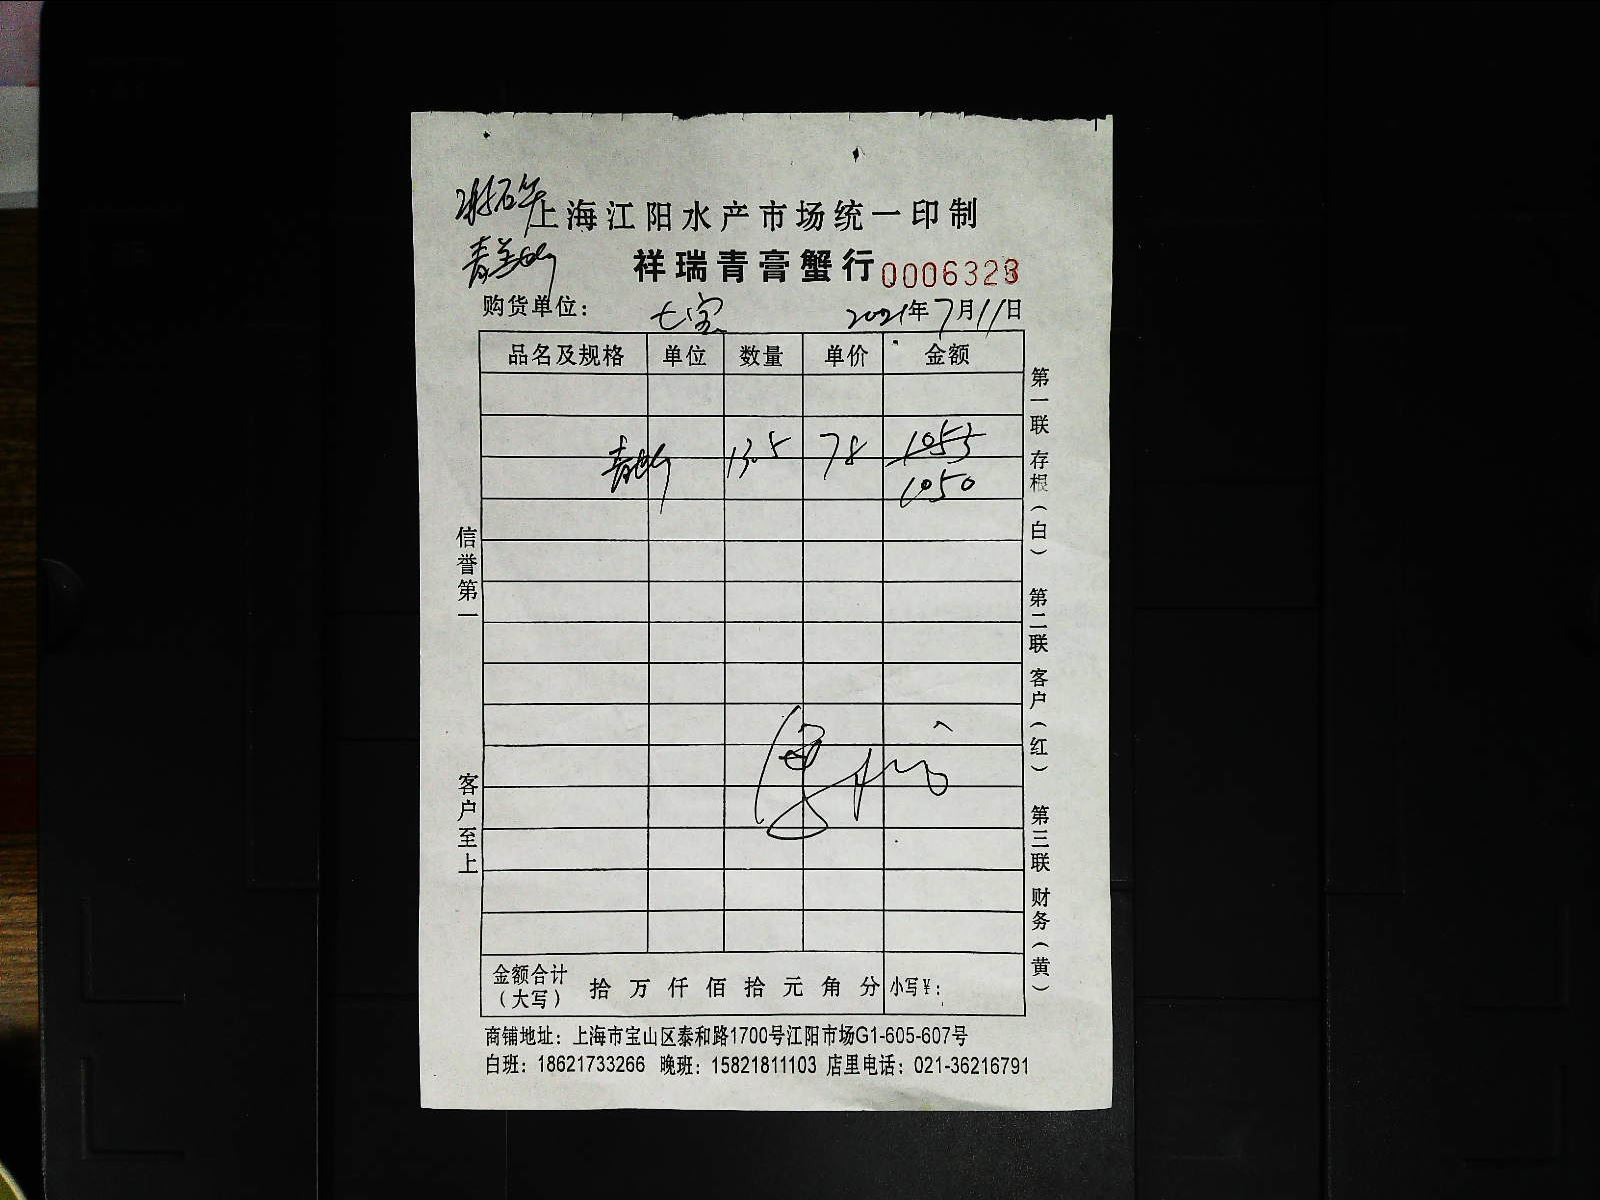 上海江阳水产市场统一印制
祥瑞青膏蟹行 0006323
购货单位： 七宝 2021年7月11日
品名及规格 单位 数量 单价 金额
13.5 78 1053
1050
金额合计（大写） 拾 万 仟 佰 拾 元 角 分 小写¥：
商铺地址：上海市宝山区泰和路1700号江阳市场G1-605-607号
白班：18621733266 晚班：15821811103 店里电话：021-36216791
信誉第一 客户至上
第一联 存根（白） 第二联 客户（红） 第三联 财务（黄）